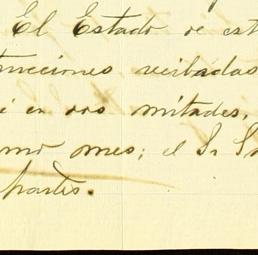 El Estado de est
trucciones recibadas
i en dos mitades.
mo mes; el Sr S
partes.